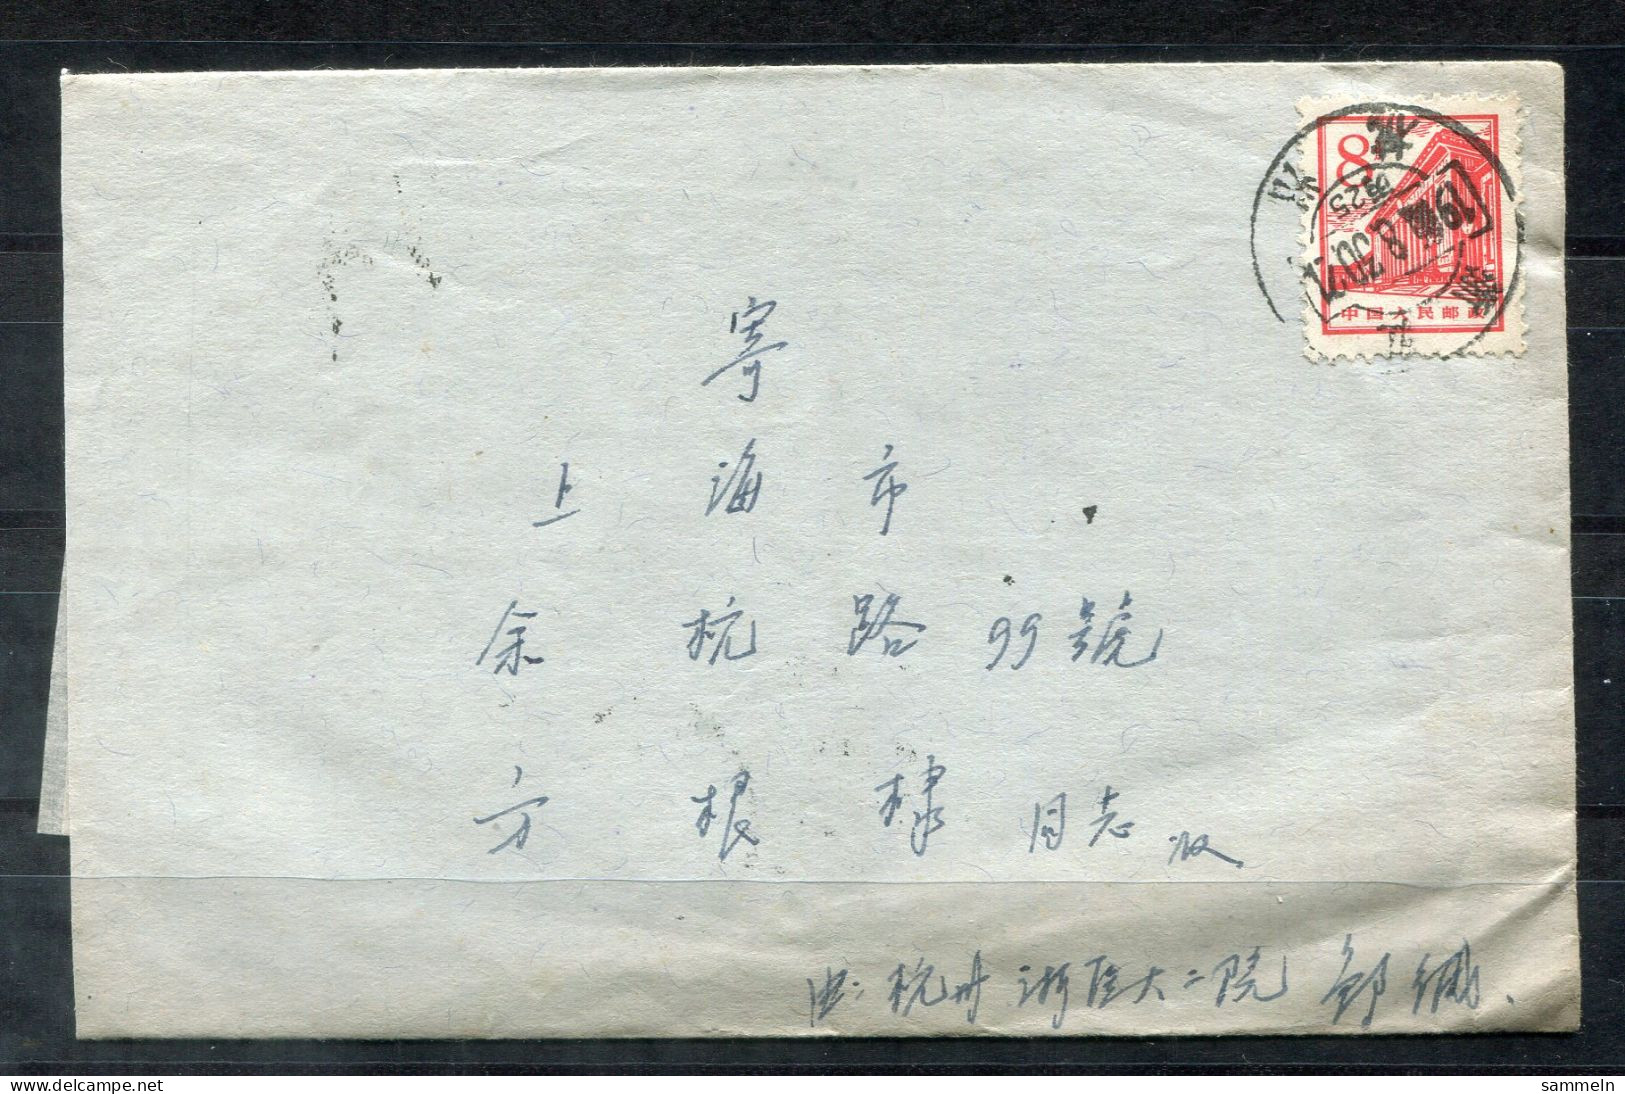 8
中国人民邮政
寄
上海市
余杭路99號
方根棣同志收
杭州浙医大二院
sammeln